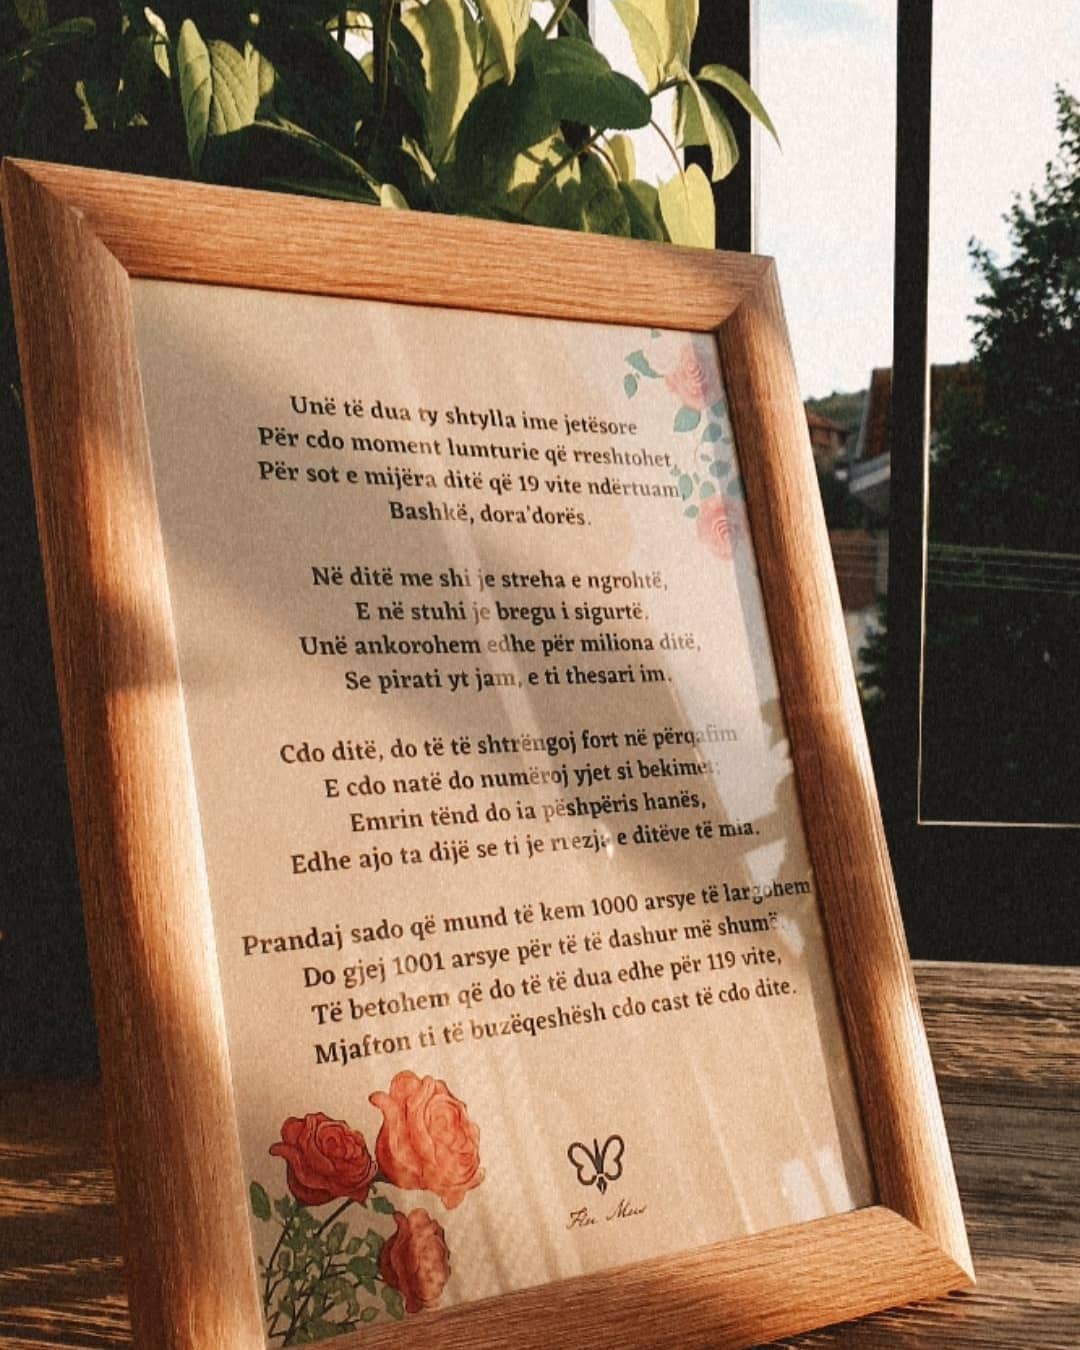 Unë të dua ty shtylla ime jetësore
Për cdo moment lumturie që rreshtohet,
Për sot e mijëra ditë që 19 vite ndërtuam,
Bashkë, dora'dorës.
Në ditë me shi je streha e ngrohtë,
E në stuhi je bregu i sigurtë.
Unë ankorohem edhe për miliona ditë,
Se pirati yt jam, e ti thesari im.
Cdo ditë, do të të shtrëngoj fort në përqafim
E cdo natë do numëroj yjet si bekimet.
Emrin tënd do ia pëshpëris hanës,
Edhe ajo ta dijë se ti je rrezja e ditëve të mia.
Prandaj sado që mund të kem 1000 arsye të largohem
Do gjej 1001 arsye për të të dashur më shumë.
Të betohem që do të të dua edhe për 119 vite,
Mjafton ti të buzëqeshësh cdo cast të cdo dite.